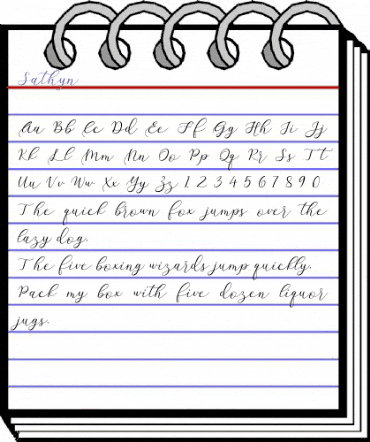 Sathyn
Aa Bb Cc Dd Ee Ff Gg Hh Ii Jj
Kk Ll Mm Nn Oo Pp Qq Rr Ss Tt
Uu Vv Ww Xx Yy Zz 1 2 3 4 5 6 7 8 9 0
The quick brown fox jumps over the
lazy dog.
The five boxing wizards jump quickly.
Pack my box with five dozen liquor
jugs.